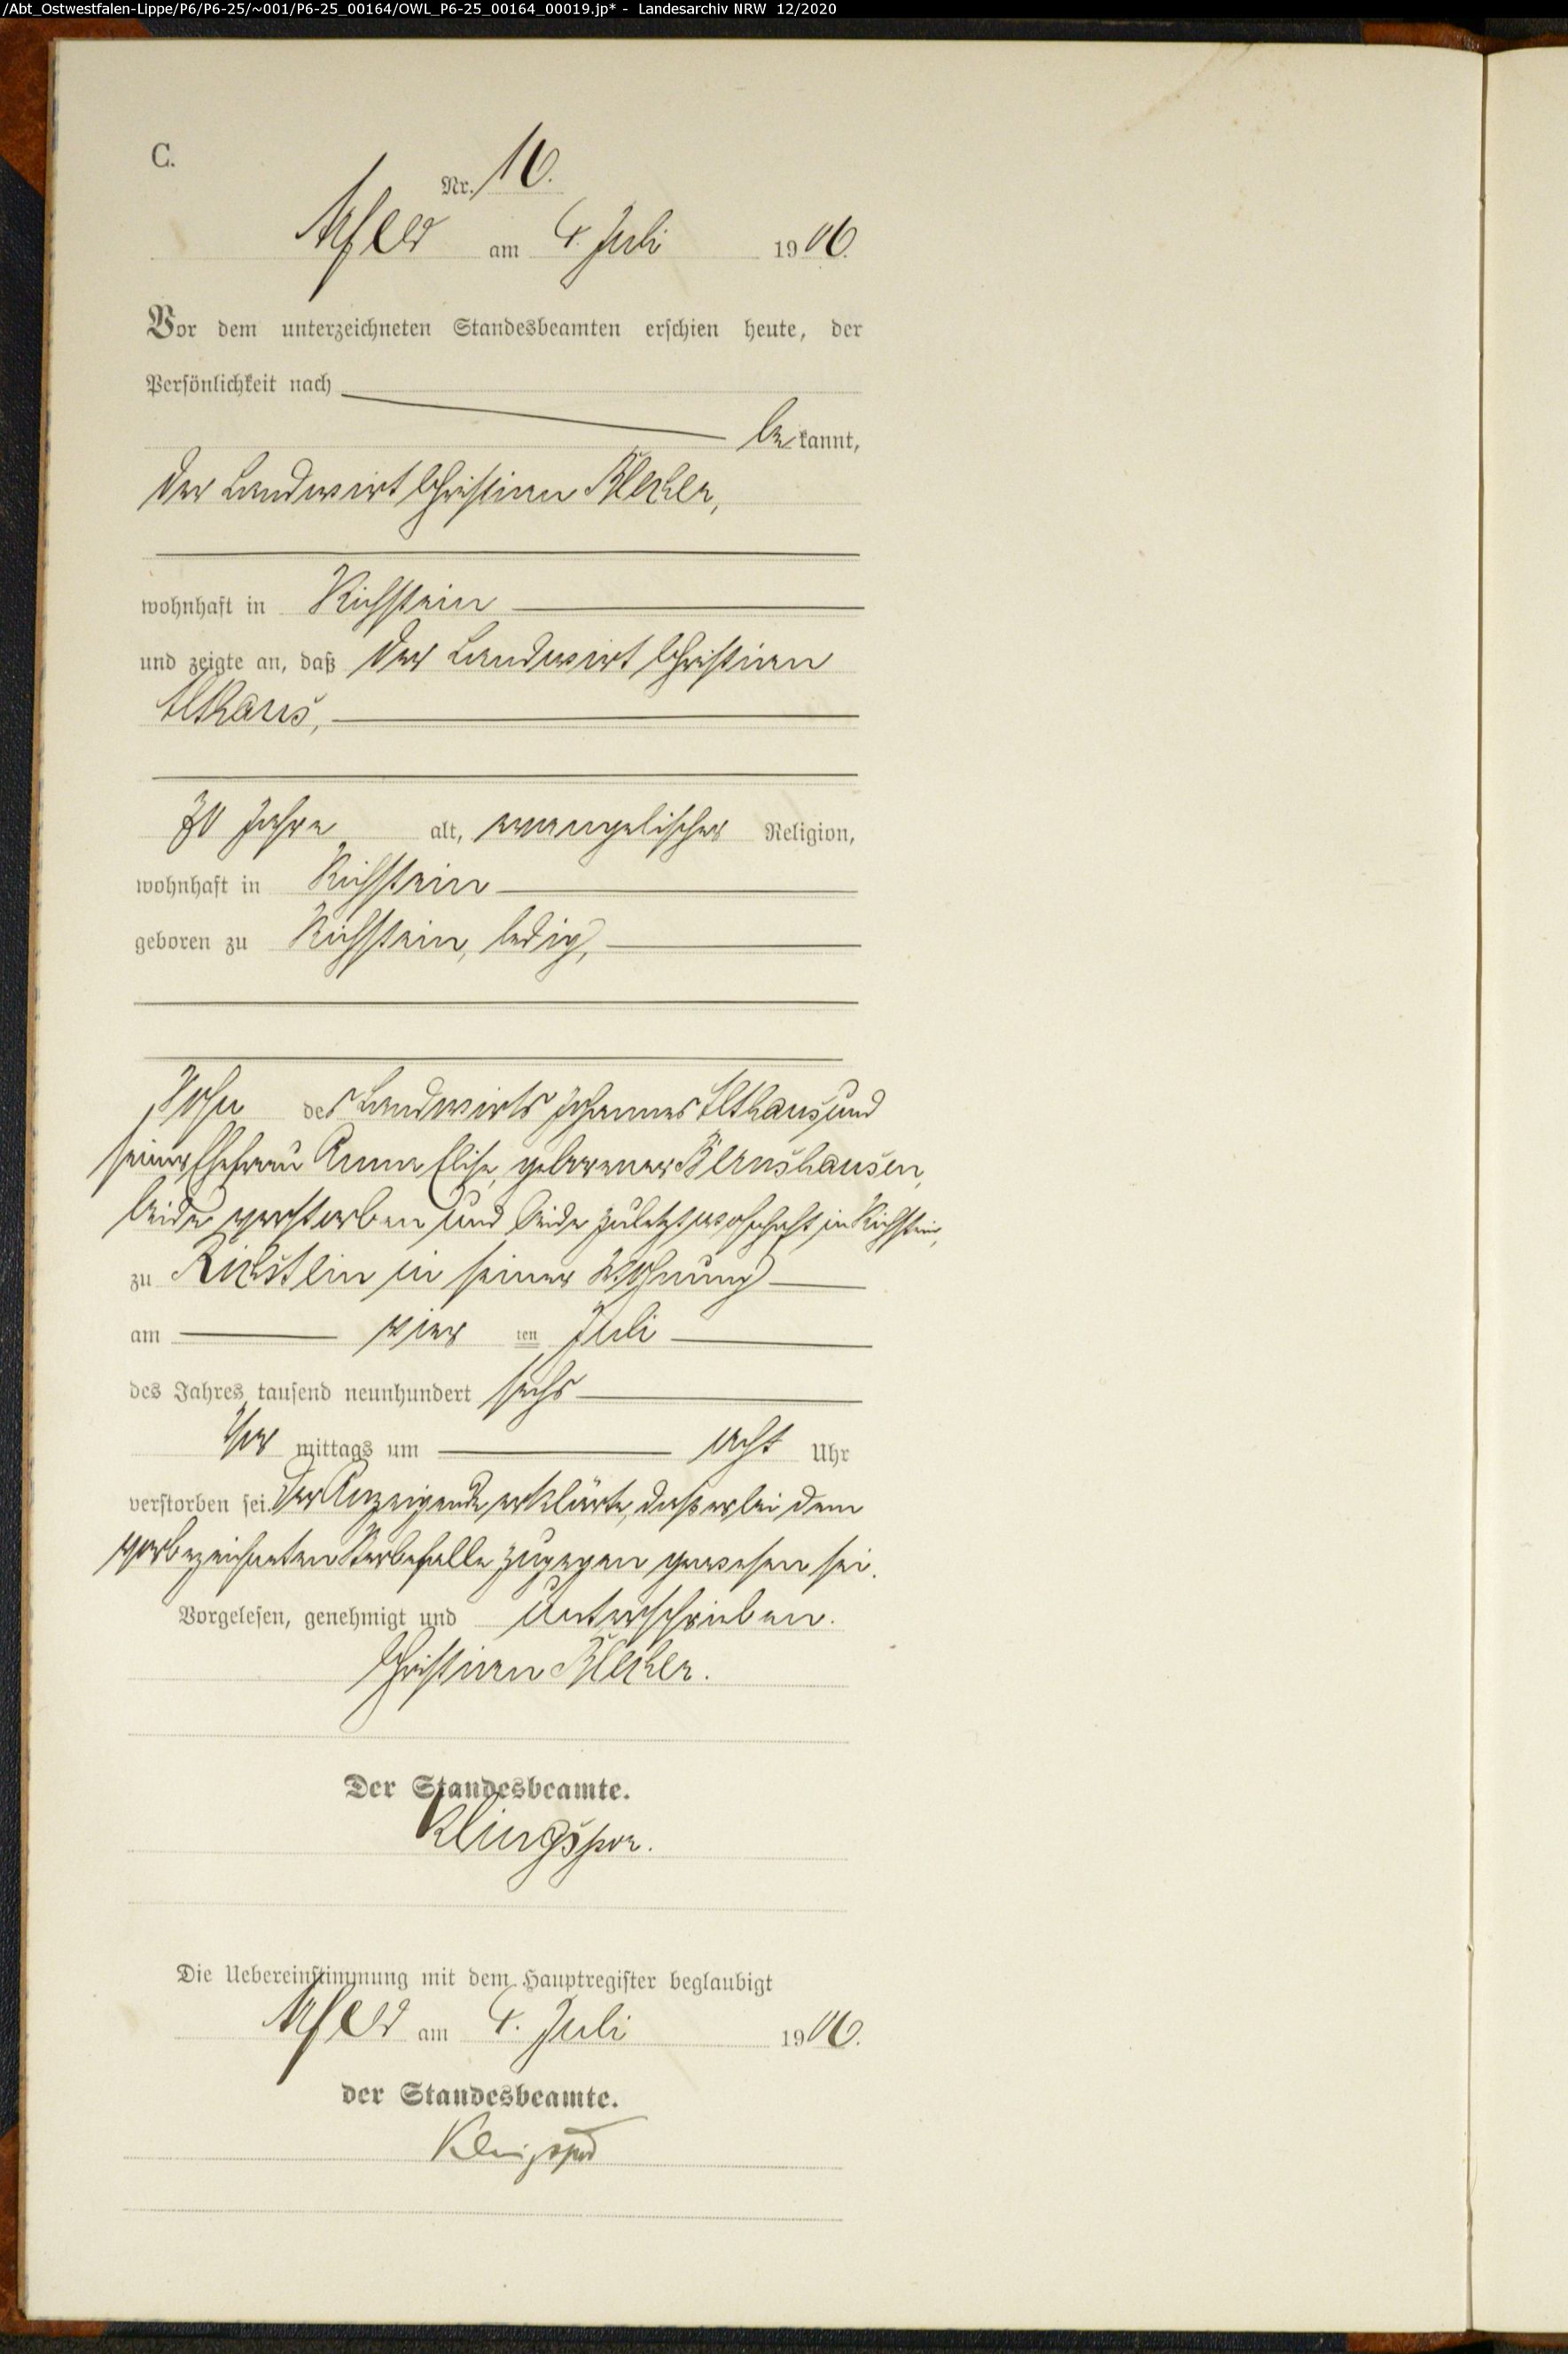 /Abt_Ostwestfalen-Lippe/P6/P6-25/~001/P6-25_00164/OWL_P6-25_00164_00019.jp* - Landesarchiv NRW 12/2020
C.
Nr. 16.
Arfeld am 4. Juli 1906.
Vor dem unterzeichneten Standesbeamten erschien heute, der
Persönlichkeit nach
bekannt,
der Landwirt Christian
wohnhaft in Richstein
und zeigte an, daß der Landwirt Christian
Althaus,
70 Jahre alt, evangelischer Religion,
wohnhaft in Richstein
geboren zu Richstein, ledig,
Sohn des Landwirts Johannes Althaus und
seiner Ehefrau Anna Elise, geborener Bernshausen,
beide verstorben und beide zuletzt wohnhaft in Richstein,
zu Richstein in seiner Wohnung
am vier ten Juli
des Jahres tausend neunhundert sechs
Vor mittags um acht Uhr
verstorben sei. Der Anzeigende erklärte, daß er bei dem
vorbezeichneten Sterbefalle zugegen gewesen sei.
Vorgelesen, genehmigt und unterschrieben.
Christian
Der Standesbeamte.
Klingspor.
Die Uebereinstimmung mit dem Hauptregister beglaubigt
Arfeld am 4. Juli 1906.
der Standesbeamte.
Klingspor